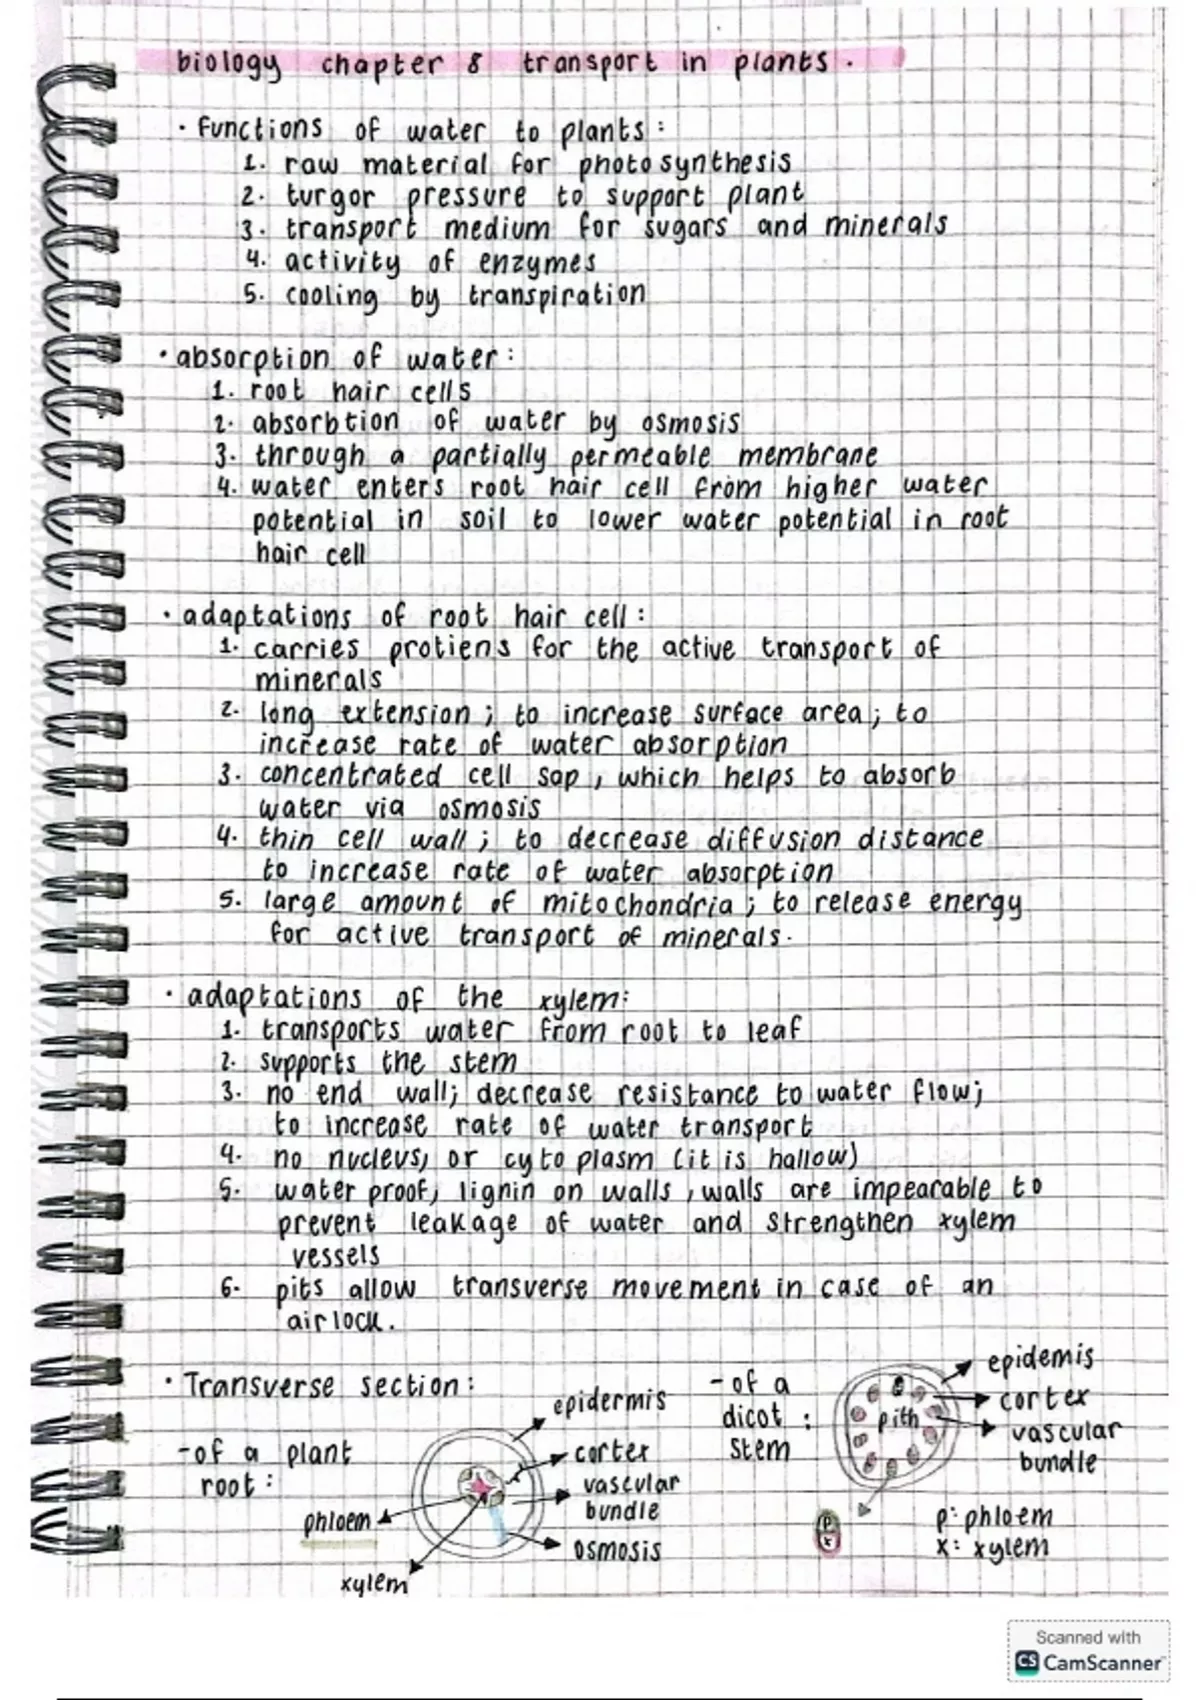 biology chapter 8 transport in plants.
• functions of water to plants:
1. raw material for photosynthesis
2. turgor pressure to support plant
3. transport medium for sugars and minerals
4. activity of enzymes
5. cooling by transpiration
• absorption of water:
1. root hair cells
2. absorbtion of water by osmosis
3. through a partially permeable membrane
4. water enters root hair cell from higher water
potential in soil to lower water potential in root
hair cell
• adaptations of root hair cell:
1. carries protiens for the active transport of
minerals
2. long extension; to increase surface area; to
increase rate of water absorption
3. concentrated cell sap, which helps to absorb
water via osmosis
4. thin cell wall; to decrease diffusion distance
to increase rate of water absorption
5. large amount of mitochondria; to release energy
for active transport of minerals.
• adaptations of the xylem:
1. transports water from root to leaf
2. supports the stem
3. no end wall; decrease resistance to water flow;
to increase rate of water transport
4. no nucleus, or cytoplasm (it is hallow)
5. water proof, lignin on walls, walls are impearable to
prevent leakage of water and strengthen xylem
vessels
6. pits allow transverse movement in case of an
air lock.
• Transverse section:
- of a plant
root:
epidermis
cortex
vascular
bundle
osmosis
phloem
xylem
- of a
dicot :
stem
pith
epidemis
cortex
vascular
bundle
p
x
p: phloem
x: xylem
Scanned with
CS CamScanner